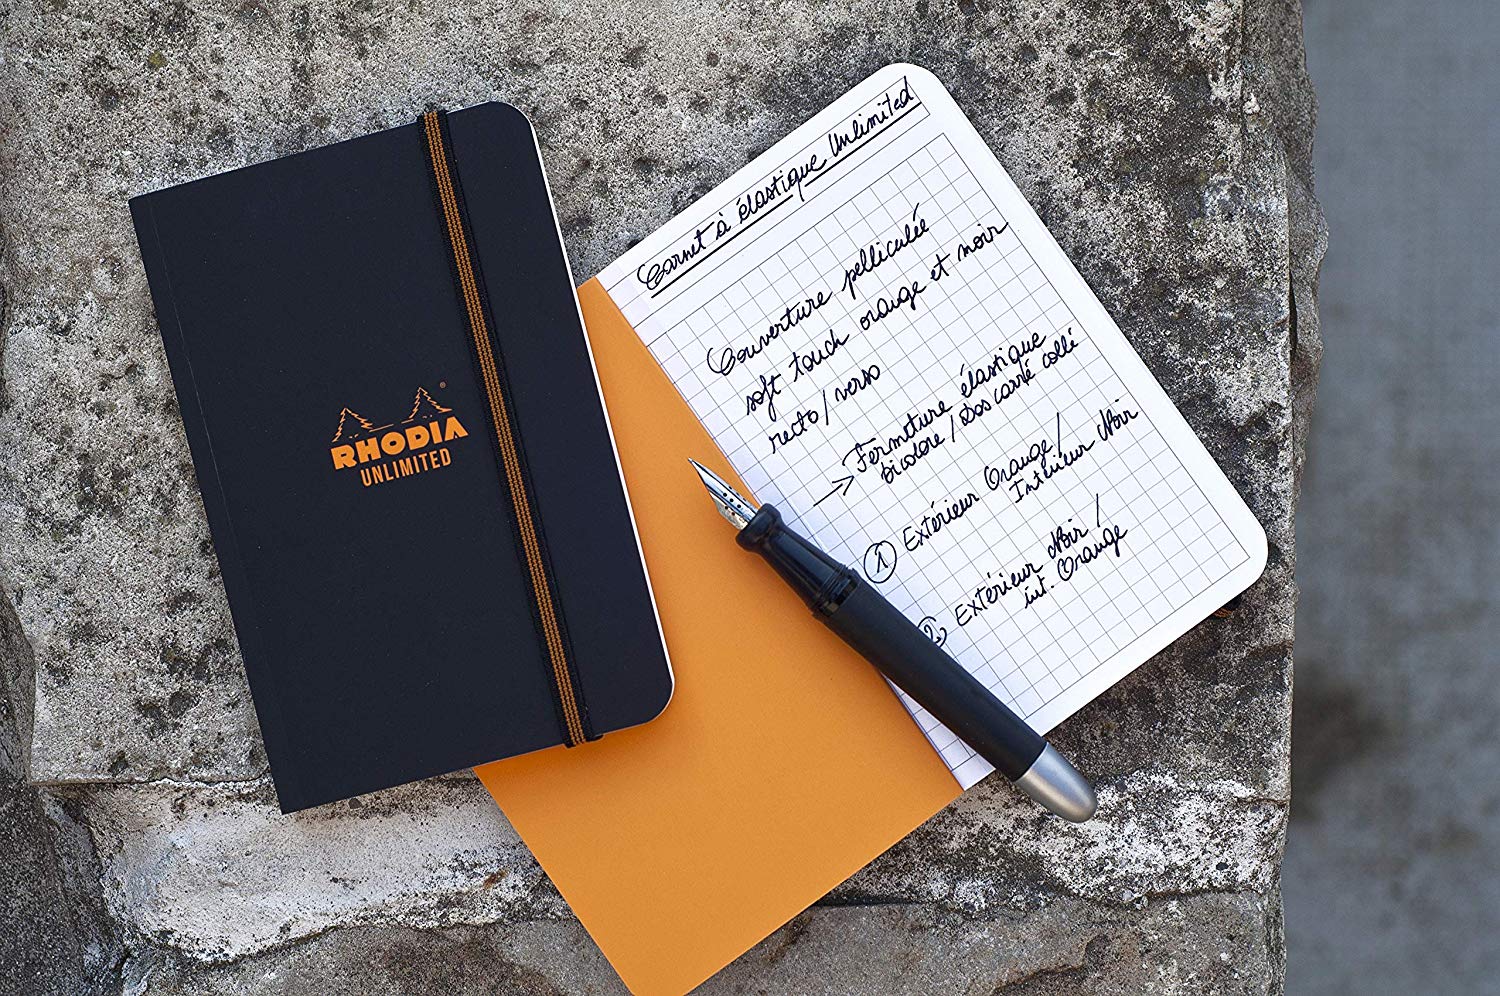 RHODIA
UNLIMITED
Carnet à élastique Unlimited
Couverture pelliculée
soft touch orange et noir
recto/verso
Fermeture élastique
bicolore / Dos carré collé
1 Extérieur Orange /
Intérieur Noir
2 Extérieur Noir /
int. Orange